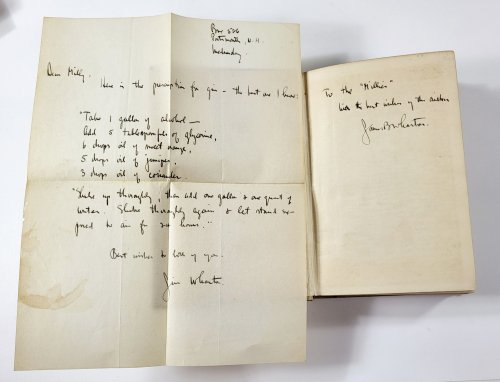 Box 526
Portsmouth, N.H.
Wednesday
Dear Milly,
Here is the prescription for gin – the best one I know:
"Take 1 gallon of alcohol —
Add 5 tablespoonfuls of glycerine,
6 drops oil of sweet orange,
5 drops oil of juniper,
3 drops oil of coriander.
"Shake up thoroughly, then add one gallon & one quart of
water. Shake thoroughly again & let stand ex-
posed to air for six hours."
Best wishes to both of you.
Jim Wharton
To the "Millers"
With the best wishes of the author
James B. Wharton.